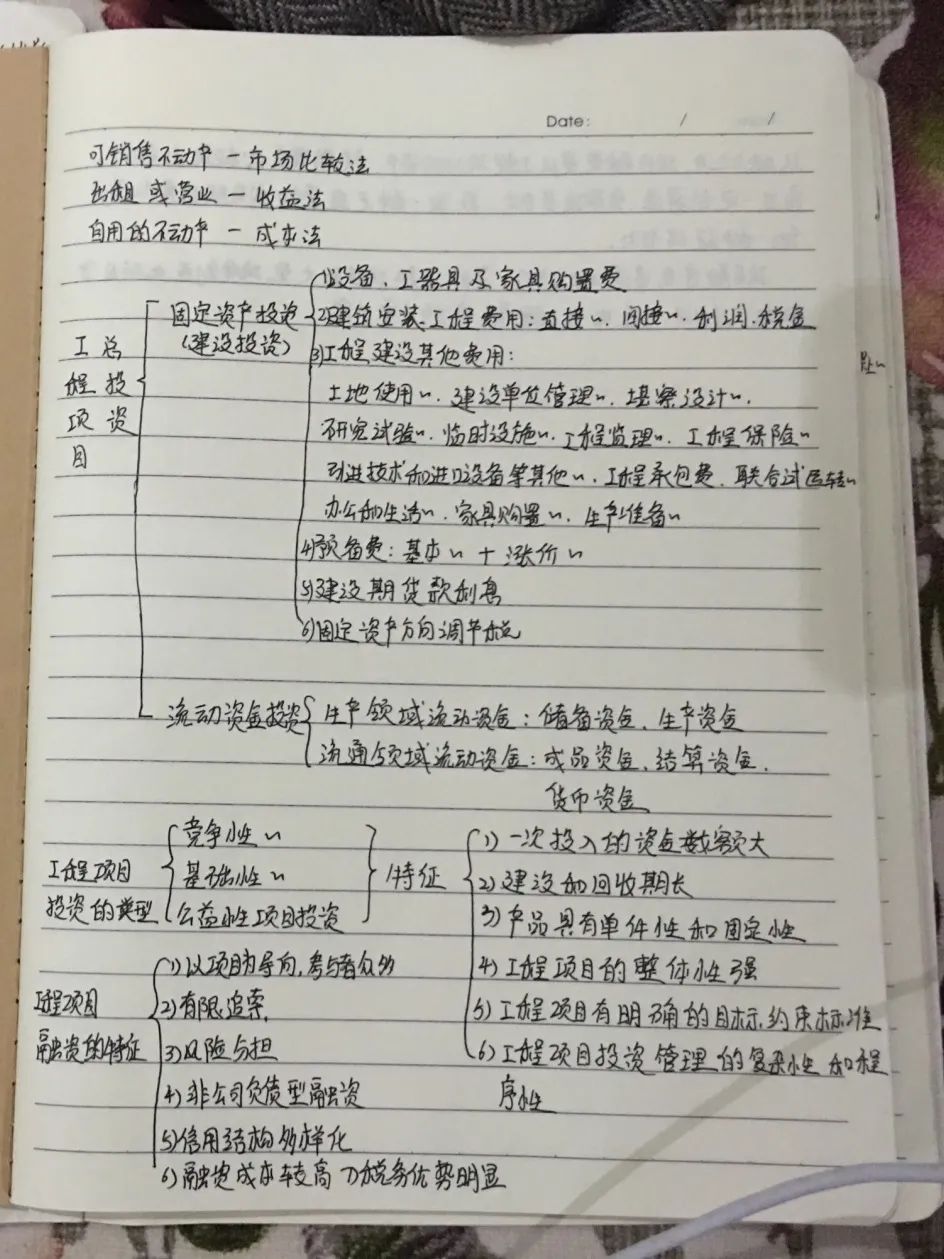 Date: / /
可销售不动产 — 市场比较法
出租或营业 — 收益法
自用的不动产 — 成本法
工程项目总投资
固定资产投资(建设投资)
1)设备、工器具及家具购置费
2)建筑安装工程费用:直接〃、间接〃、利润、税金
3)工程建设其他费用:
土地使用〃、建设单位管理〃、堪察设计〃、
研究试验〃、临时设施〃、工程监理〃、工程保险〃
引进技术和进口设备等其他〃、工程承包费、联合试运转〃
办公和生活〃、家具购置〃、生产准备〃
4)预备费:基本〃 + 涨价〃
5)建设期贷款利息
6)固定资产方向调节税
流动资金投资
生产领域流动资金:储备资金、生产资金
流通领域流动资金:成品资金、结算资金、
货币资金
工程项目
投资的类型
竞争性〃
基础性〃
公益性项目投资
特征
1)一次投入的资金数额大
2)建设和回收期长
3)产品具有单件性和固定性
4)工程项目的整体性强
5)工程项目有明确的目标、约束标准
6)工程项目投资管理的复杂性和程
序性
工程项目
融资的特征
1)以项目为导向,参与者众多
2)有限追索
3)风险分担
4)非公司负债型融资
5)信用结构多样化
6)融资成本较高 7)税务优势明显